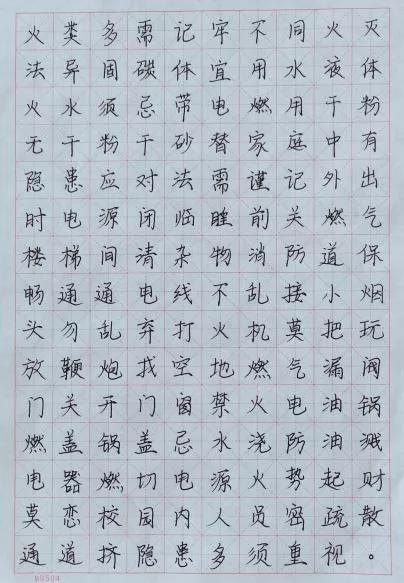 火类多需记牢不同火灭
法异固碳体宜用水液体
火水须忌带电燃用干粉
无干粉干砂替家庭中有
隐患应对法需谨记外出
时电源闭临睡前关燃气
楼梯间清杂物消防道保
畅通通电线不乱接小烟
头勿乱弃打火机莫把玩
放鞭炮找空地燃气漏阀
门关开门窗禁火电油锅
燃盖锅盖忌水浇防油溅
电器燃切电源火势起财
莫恋校园内人员密疏散
通道挤隐患多须重视。